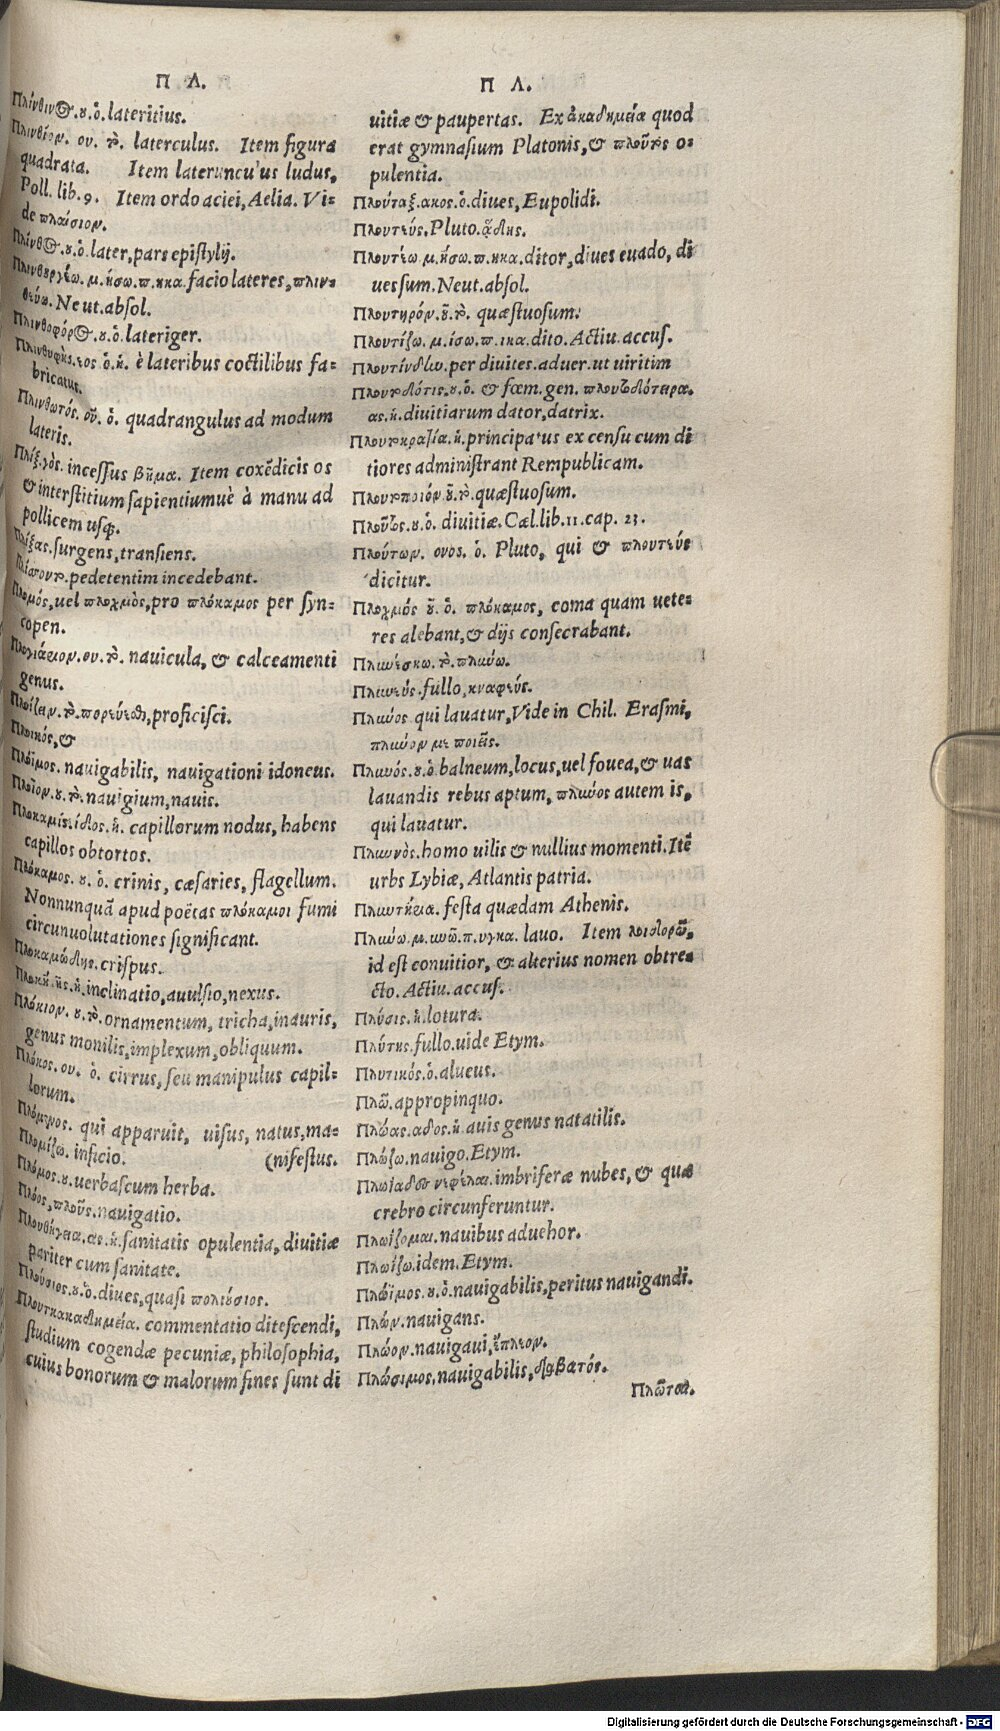 Π Λ.
Πλίνθινος.ου.ὁ.lateritius.
Πλινθίον. ου. τὸ. laterculus. Item figura
quadrata. Item lateruncu'us ludus,
Poll. lib. 9. Item ordo aciei, Aelia. Vi-
de πλαίσιον.
Πλίνθος.ου.ὁ.later,pars epistylij.
Πλινθουργέω.μ.ήσω.π.ηκα.facio lateres,πλιν-
θεύω.Neut.absol.
Πλινθοφόρος.ου.ὁ.lateriger.
Πλινθυφὴς.εος ὁ.ἡ. è lateribus coctilibus fa-
bricatus.
Πλινθωτός.οῦ.ὁ. quadrangulus ad modum
lateris.
Πλίξ.γὸς.incessus βῆμα. Item coxẽdicis os
& interstitium sapientiumuè à manu ad
pollicem usq;.
πλίξας.surgens,transiens.
pedetentim incedebant.
Πλοσμός,uel πλοχμὸς,pro πλόκαμος per syn-
copen.
ου.τὸ. nauicula, & calceamenti
genus.
Πλοΐζειν.τὸ.πορεύεσθαι,proficisci.
Πλοικός,&
Πλόϊμος.nauigabilis, nauigationi idoneus.
Πλοῖον.ου.τὸ.nauigium,nauis.
ἡ. capillorum nodus, habens
capillos obtortos.
Πλόκαμος. ου. ὁ. crinis, cæsaries, flagellum.
Nonnunquã apud poëtas πλόκαμοι fumi
circunuolutationes significant.
Πλοκαμώδης.crispus.
Πλοκὴ.ῆς.ἡ.inclinatio,auulsio,nexus.
Πλόκιον.ου.τὸ.ornamentum, tricha,inauris,
genus monilis,implexum,obliquum.
Πλόκος.ου. ὁ. cirrus, seu manipulus capil-
lorum.
qui apparuit, uisus, natus,ma-
Πλομίζω.inficio. (nifestus.
Πλόμος.ου.uerbascum herba.
Πλόος,πλοῦς.nauigatio.
Πλουθυγίεια.ας.ἡ.sanitatis opulentia, diuitiæ
pariter cum sanitate.
Πλούσιος.ου.ὁ.diues,quasi πολιούσιος.
Πλουτακαδημεία. commentatio ditescendi,
studium cogendæ pecuniæ, philosophia,
cuius bonorum & malorum fines sunt di
Π Λ.
uitiæ & paupertas. Ex ἀκαδημεία quod
erat gymnasium Platonis,& πλοῦτος o-
pulentia.
Πλούταξ.ακος.ὁ.diues,Eupolidi.
Πλουτεύς.Pluto.ᾅδης.
Πλουτέω μ.ήσω.π.ηκα.ditor,diues euado, di
ues sum.Neut.absol.
Πλουτηρόν.οῦ.τὸ. quæstuosum.
Πλουτίζω.μ.ίσω.π.ικα.dito.Actiu.accus.
Πλουτίνδην.per diuites.aduer.ut uiritim
Πλουτοδότις.ου.ὁ. & fœm.gen. πλουτοδότειρα.
ας.ἡ.diuitiarum dator,datrix.
Πλουτοκρατία.ἡ.principa'us ex censu cum di
tiores administrant Rempublicam.
Πλουτοποιόν.οῦ.τὸ.quæstuosum.
Πλοῦτος.ου.ὁ. diuitiæ.Cæl.lib.11.cap. 23.
Πλούτων. ωνος. ὁ. Pluto, qui & πλουτεὺς
dicitur.
Πλοχμός οῦ. ὁ. πλόκαμος, coma quam uete-
res alebant,& dijs consecrabant.
Πλαυνέσκω.τὸ.πλαύνω.
Πλαυνεύς.fullo,κναφεύς.
Πλαῦνος qui lauatur,Vide in Chil. Erasmi,
πλαῦνον με ποιεῖς.
Πλαυνός.ου.ὁ balneum,locus,uel fouea,& uas
lauandis rebus aptum, πλαῦνος autem is,
qui lauatur.
Πλαυνὸς.homo uilis & nullius momenti.Itẽ
urbs Lybiæ, Atlantis patria.
Πλαυντήρια. festa quædam Athenis.
lauo. Item λοιδορῶ,
id est conuitior, & alterius nomen obtre-
cto. Actiu.accus.
Πλύσις.ἡ.lotura.
Πλύτης.fullo.uide Etym.
Πλυτικός.ὁ.alueus.
Πλῶ.appropinquo.
Πλώας.αδος.ἡ auis genus natatilis.
Πλώζω.nauigo.Etym.
Πλωϊάδες νεφέλαι.imbriferæ nubes, & quæ
crebro circunferuntur.
Πλωΐζομαι.nauibus aduehor.
Πλωΐζω.idem.Etym.
Πλώϊμος.ου.ὁ.nauigabilis,peritus nauigandi.
Πλών.nauigans.
Πλώον.nauigaui,ἔπλεον.
Πλώσιμος.nauigabilis,διαβατός.
Πλῶται.
Digitalisierung gefördert durch die Deutsche Forschungsgemeinschaft - DFG